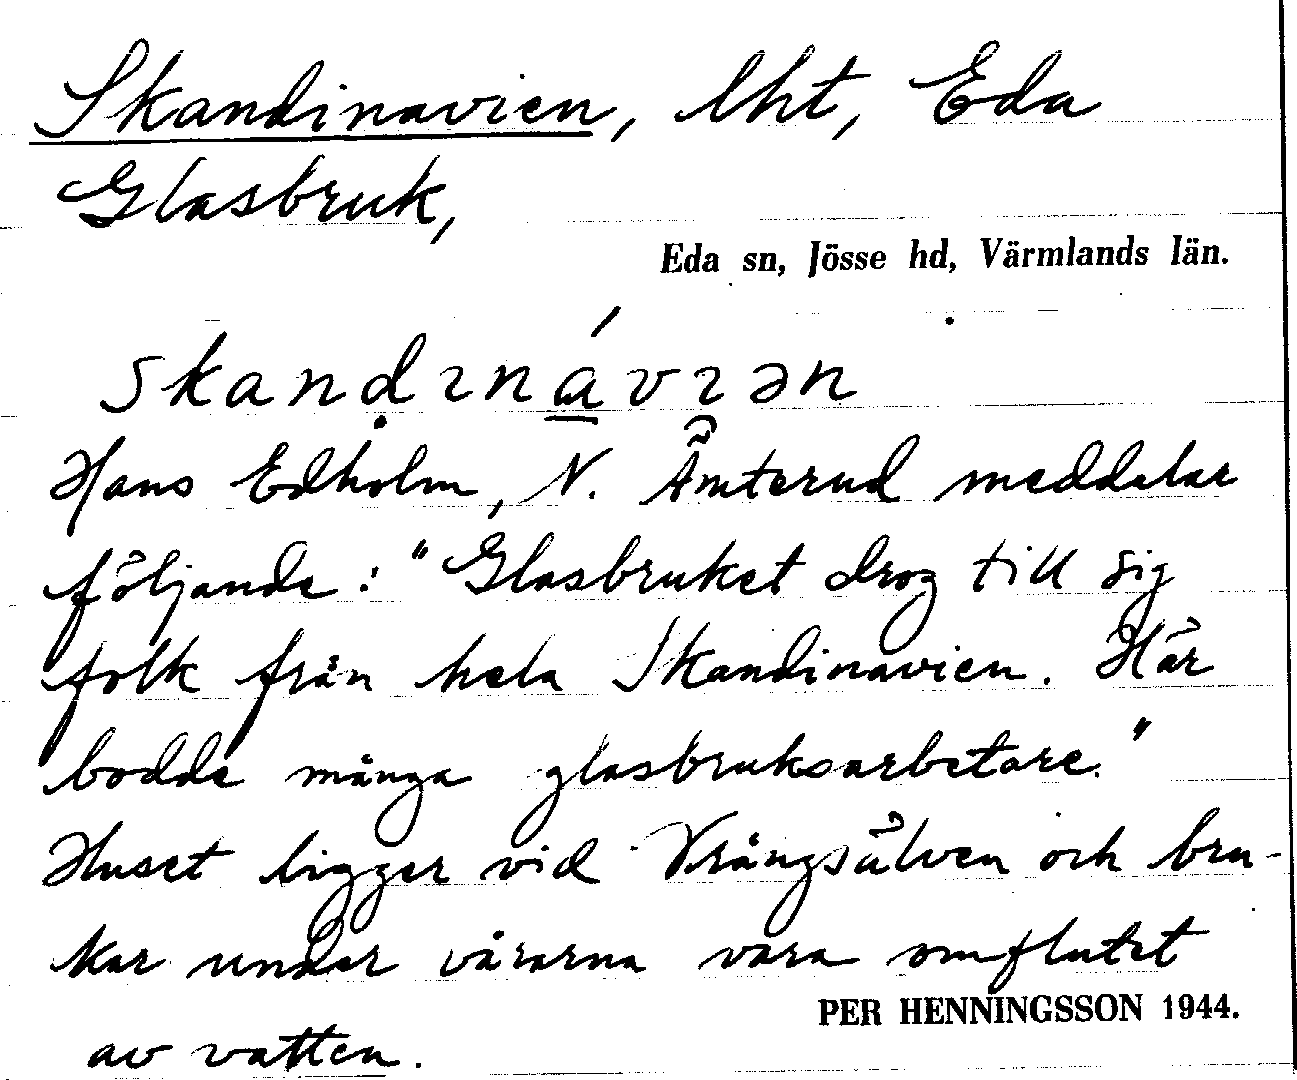 Skandinavien, lht, Eda
Glasbruk,
Eda sn, Jösse hd, Värmlands län.
skandɩnávɩən
Hans Edholm, N. Ämterud meddelar
följande: "Glasbruket drog till sig
folk från hela Skandinavien. Här
bodde många glasbruksarbetare."
Huset ligger vid Vrångsälven och bru-
kar under vårarna vara omflutet
PER HENNINGSSON 1944.
av vatten.